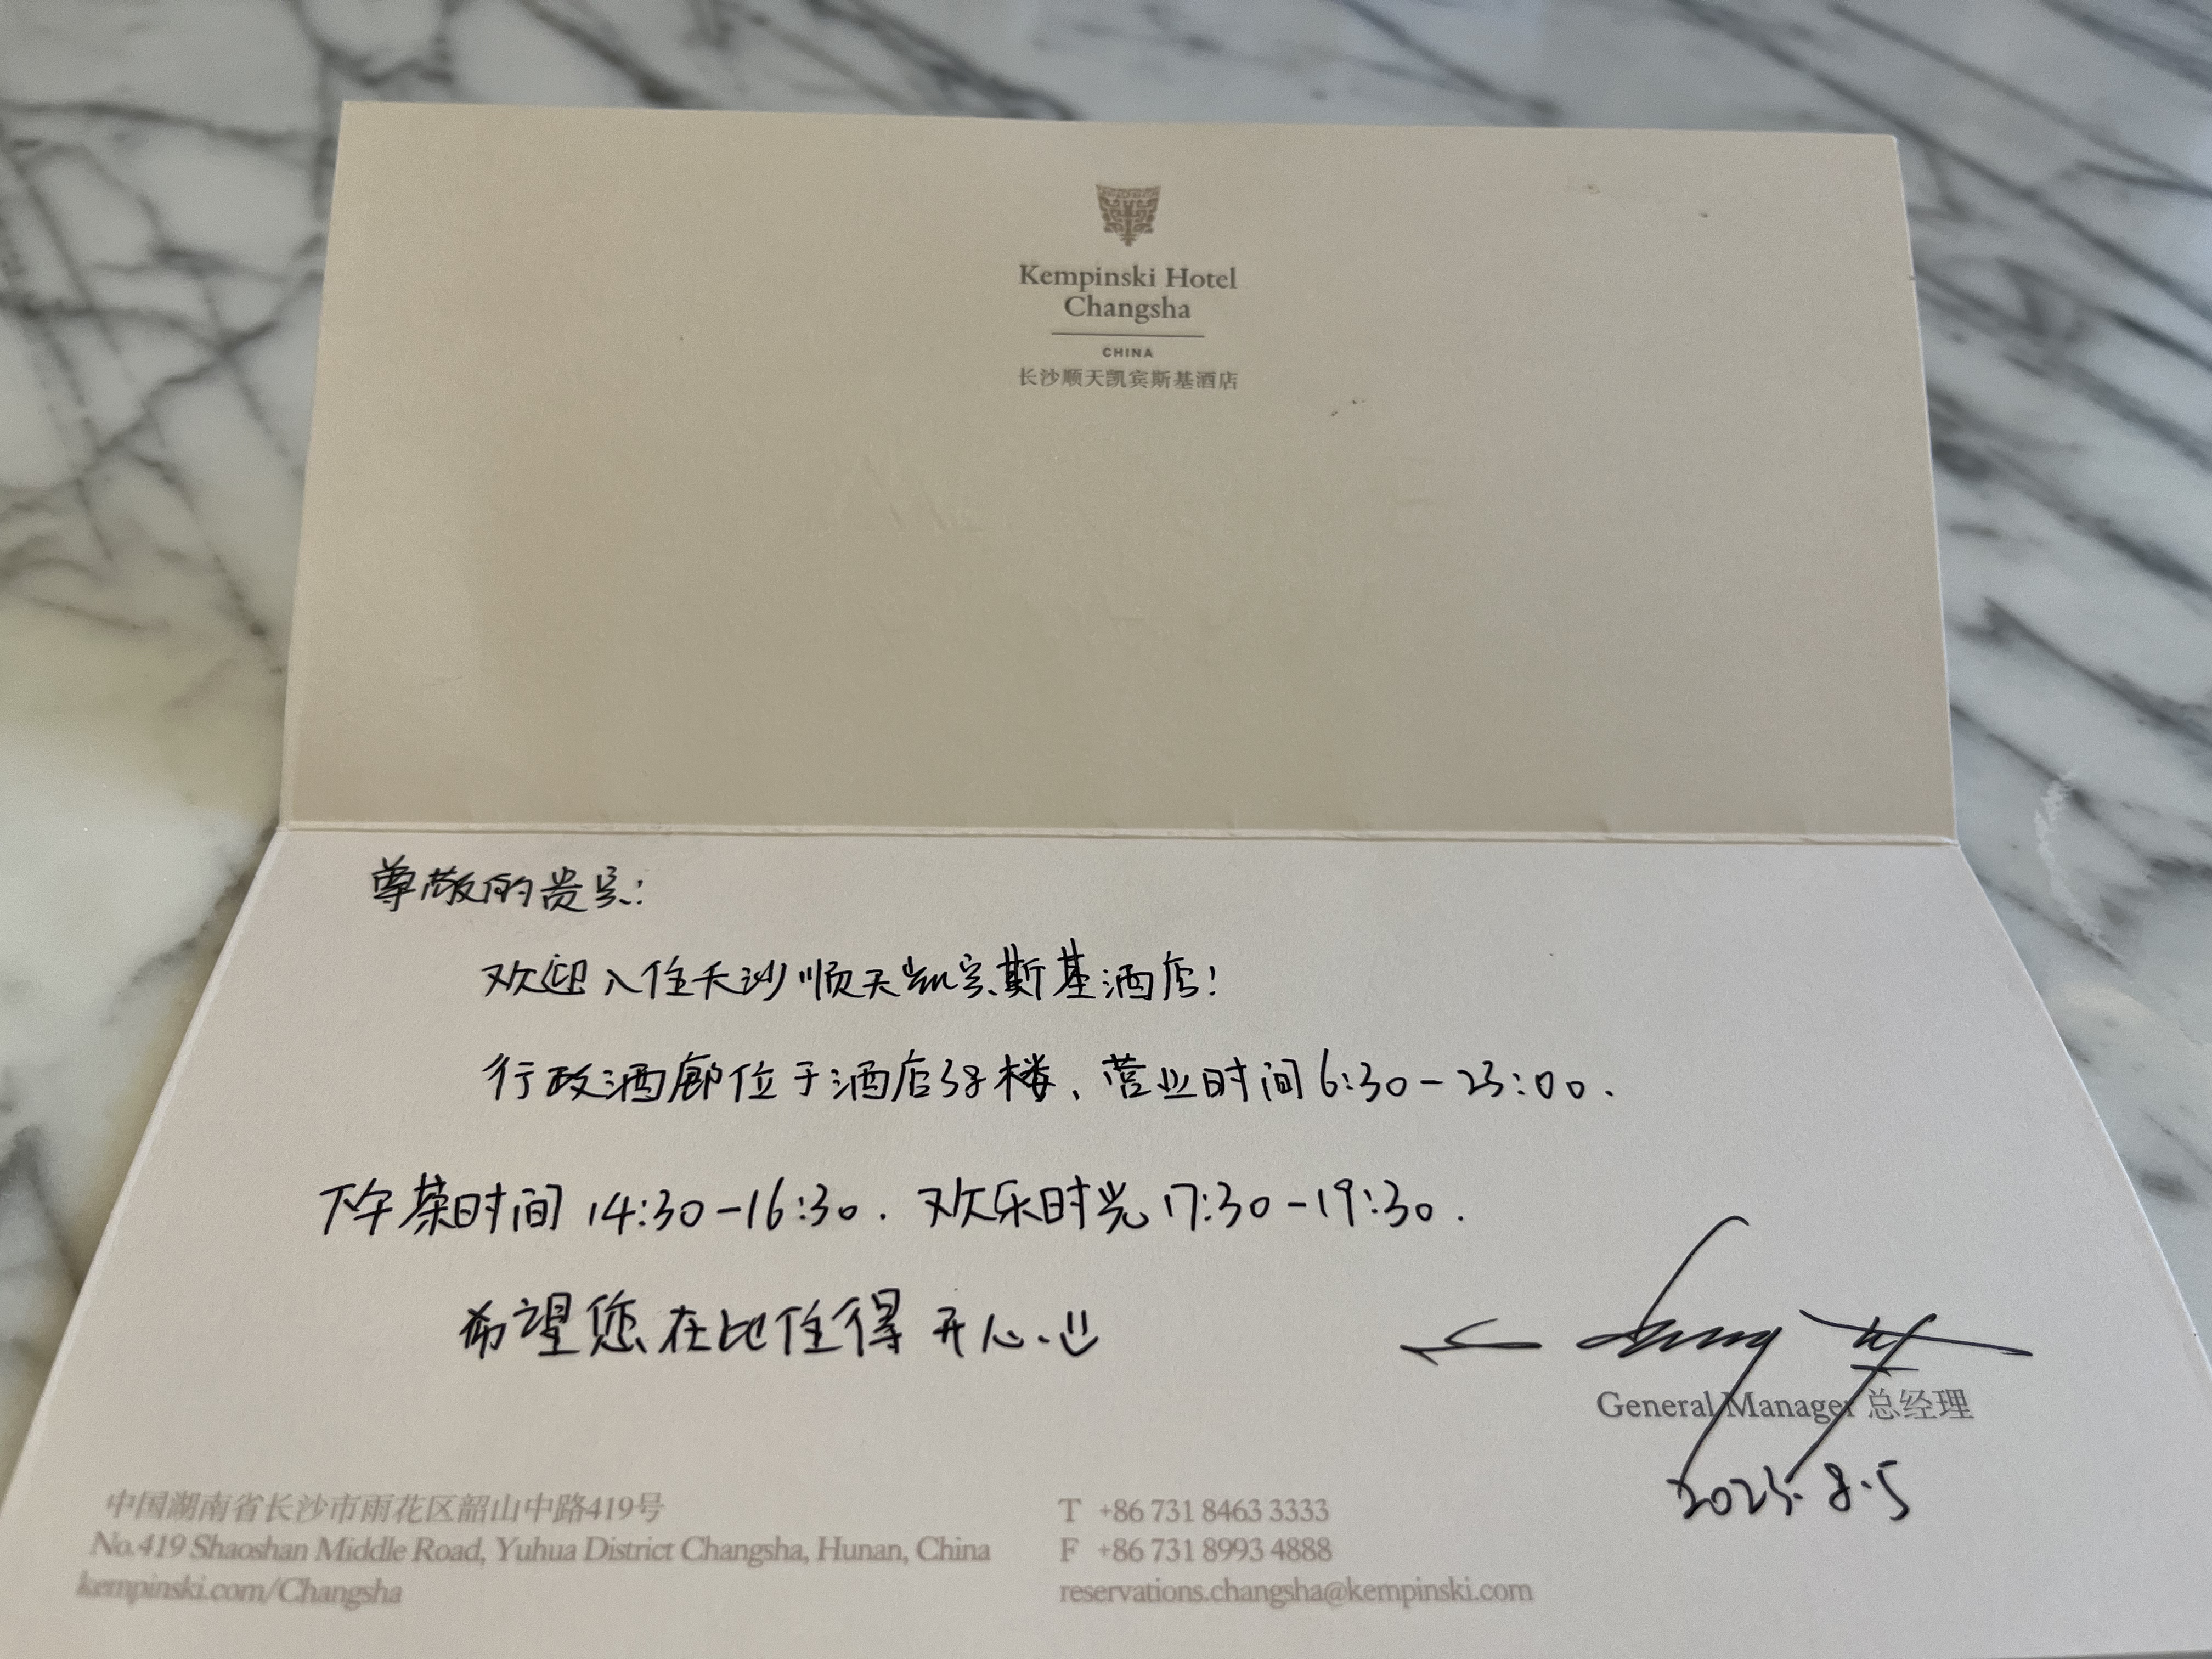 Kempinski Hotel
Changsha
CHINA
长沙顺天凯宾斯基酒店
尊敬的贵宾:
欢迎入住长沙顺天凯宾斯基酒店!
行政酒廊位于酒店38楼、营业时间6:30-23:00.
下午茶时间14:30-16:30. 欢乐时光17:30-19:30.
希望您在此住得开心.
General Manager 总经理
2025.8.5
中国湖南省长沙市雨花区韶山中路419号
No.419 Shaoshan Middle Road, Yuhua District Changsha, Hunan, China
kempinski.com/Changsha
T +86 731 8463 3333
F +86 731 8993 4888
reservations.changsha@kempinski.com